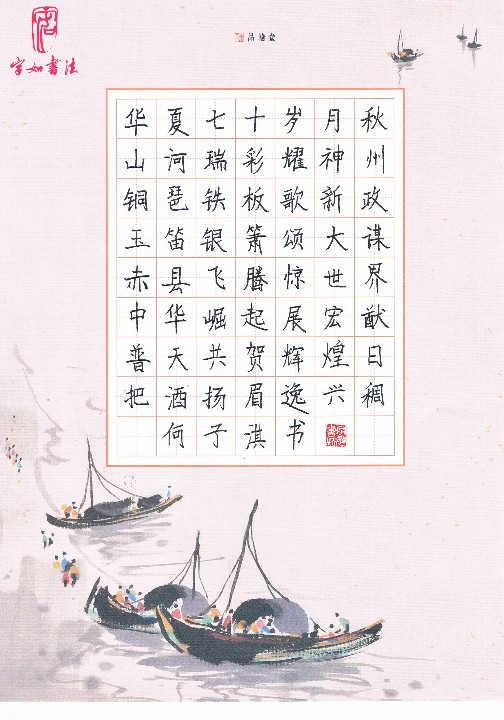 字如書法
华夏七十岁月秋
山河瑞彩耀神州
铜琶铁板歌新政
玉笛银箫颂大谋
赤县飞腾惊世界
中华崛起展宏猷
普天共贺辉煌日
把酒扬眉逸兴稠
何子淇书